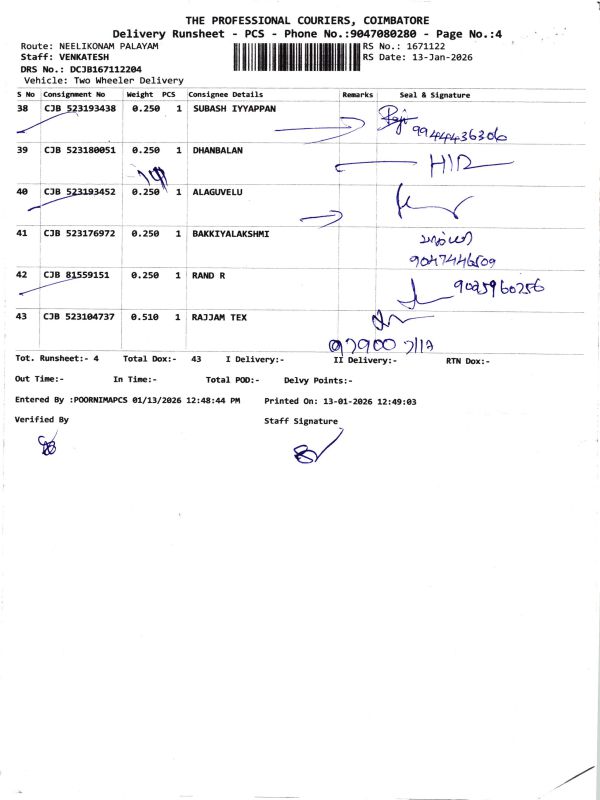 THE PROFESSIONAL COURIERS, COIMBATORE
Delivery Runsheet - PCS - Phone No.:9047080280 - Page No.:4
Route: NEELIKONAM PALAYAM
RS No.: 1671122
Staff: VENKATESH
RS Date: 13-Jan-2026
DRS No.: DCJB167112204
Vehicle: Two Wheeler Delivery
S No Consignment No Weight PCS Consignee Details Remarks Seal & Signature
38 CJB 523193438 0.250 1 SUBASH IYYAPPAN
9944436306
39 CJB 523180051 0.250 1 DHANBALAN
40 CJB 523193452 0.250 1 ALAGUVELU
41 CJB 523176972 0.250 1 BAKKIYALAKSHMI
9047446509
42 CJB 81559151 0.250 1 RAND R
9025960256
43 CJB 523104737 0.510 1 RAJJAM TEX
Tot. Runsheet:- 4 Total Dox:- 43 I Delivery:- II Delivery:- RTN Dox:-
Out Time:- In Time:- Total POD:- Delvy Points:-
Entered By :POORNIMAPCS 01/13/2026 12:48:44 PM Printed On: 13-01-2026 12:49:03
Verified By Staff Signature